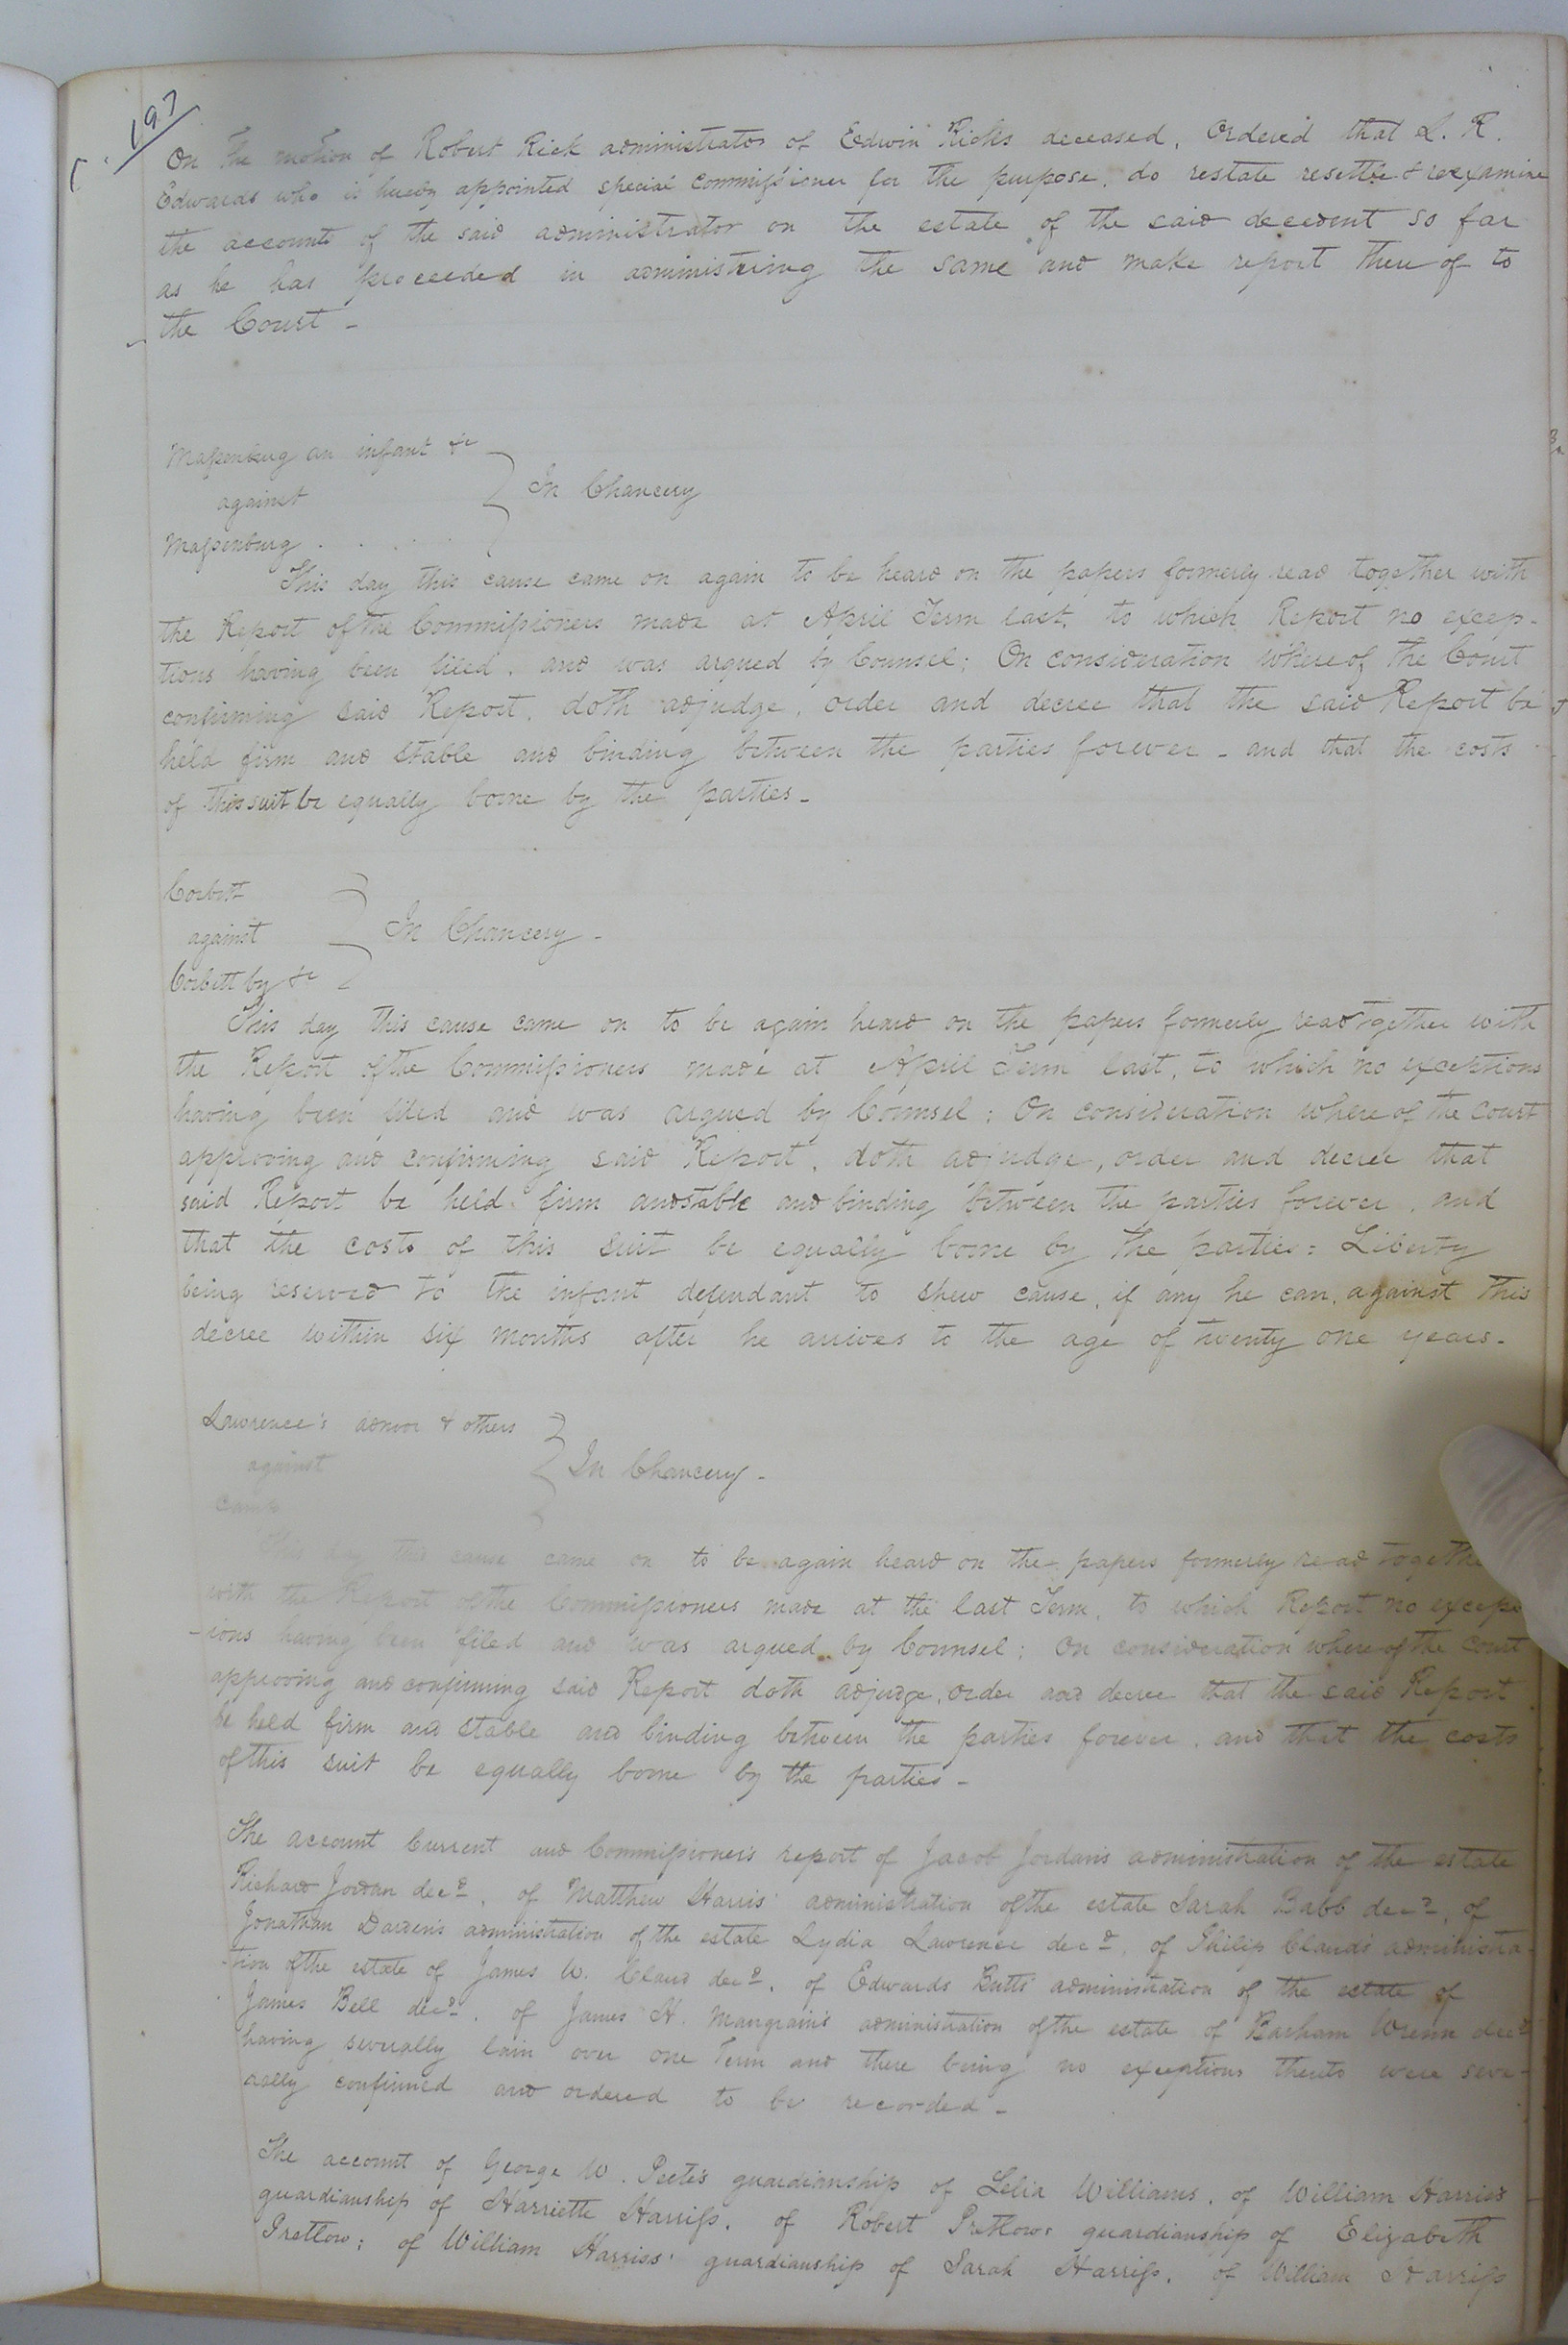 197
On the motion of Robert Rick administrator of Edwin Ricks deceased, Ordered that L. R.
Edwards who is hereby appointed special commissioner for the purpose, do restate resettle & reexamine
the accounts of the said administrator on the estate of the said decedent so far
as he has proceeded in administring the same and make report there of to
the Court -
Massenburg an infant &c
against
In Chancery
Massenburg . . . .
This day this cause came on again to be heard on the papers formerly read together with
the Report of the Commissioners made at April Term last, to which Report no excep-
tions having been filed, and was argued by Counsel; On consideration whereof the Court
confirming said Report, doth adjudge, order and decree that the said Report be
held firm and stable and binding between the parties forever - and that the costs
of this suit be equally borne by the parties -
Corbett
against
In Chancery -
Corbett by &c
This day this cause came on to be again heard on the papers formerly read together with
the Report of the Commissioners made at April Term last, to which no exceptions
having been filed and was argued by Counsel; On consideration where of the Court
approving and confirming said Report, doth adjudge, order and decree that
said Report be held firm and stable and binding between the parties forever, and
that the costs of this suit be equally borne by the parties: Liberty
being reserved to the infant defendant to shew cause, if any he can, against this
decree within six months after he arrives to the age of twenty one years -
Lawrence's admor & others
against
In Chancery -
This day this cause came on to be again heard on the papers formerly read together
with the Report of the Commissioners made at the last Term, to which Report no except
-ions having been filed and was argued by Counsel; On consideration where of the Court
approving and confirming said Report doth adjudge, order and decree that the said Report
be held firm and stable and binding between the parties forever, and that the costs
of this suit be equally borne by the parties -
The account Current and Commissioner's report of Jacob Jordan's administration of the estate
Richard Jordan decd, of Matthew Harris' administration of the estate Sarah Babb decd, of
Jonathan Darden's administration of the estate Lydia Lawrence decd, of Philip Claud's administra-
-tion of the estate of James W. Claud decd, of Edwards Butts administration of the estate of
James Bell decd, of James H. Mangrain's administration of the estate of Barham Wrenn decd
having severally lain over one Term and there being no exceptions thereto were seve-
rally confirmed and ordered to be recorded -
The account of George W. Peete's guardianship of Lelia Williams, of William Harriss
guardianship of Harriette Harriss, of Robert Pretlow's guardianship of Elizabeth
Pretlow; of William Harriss' guardianship of Sarah Harriss, of William Harriss